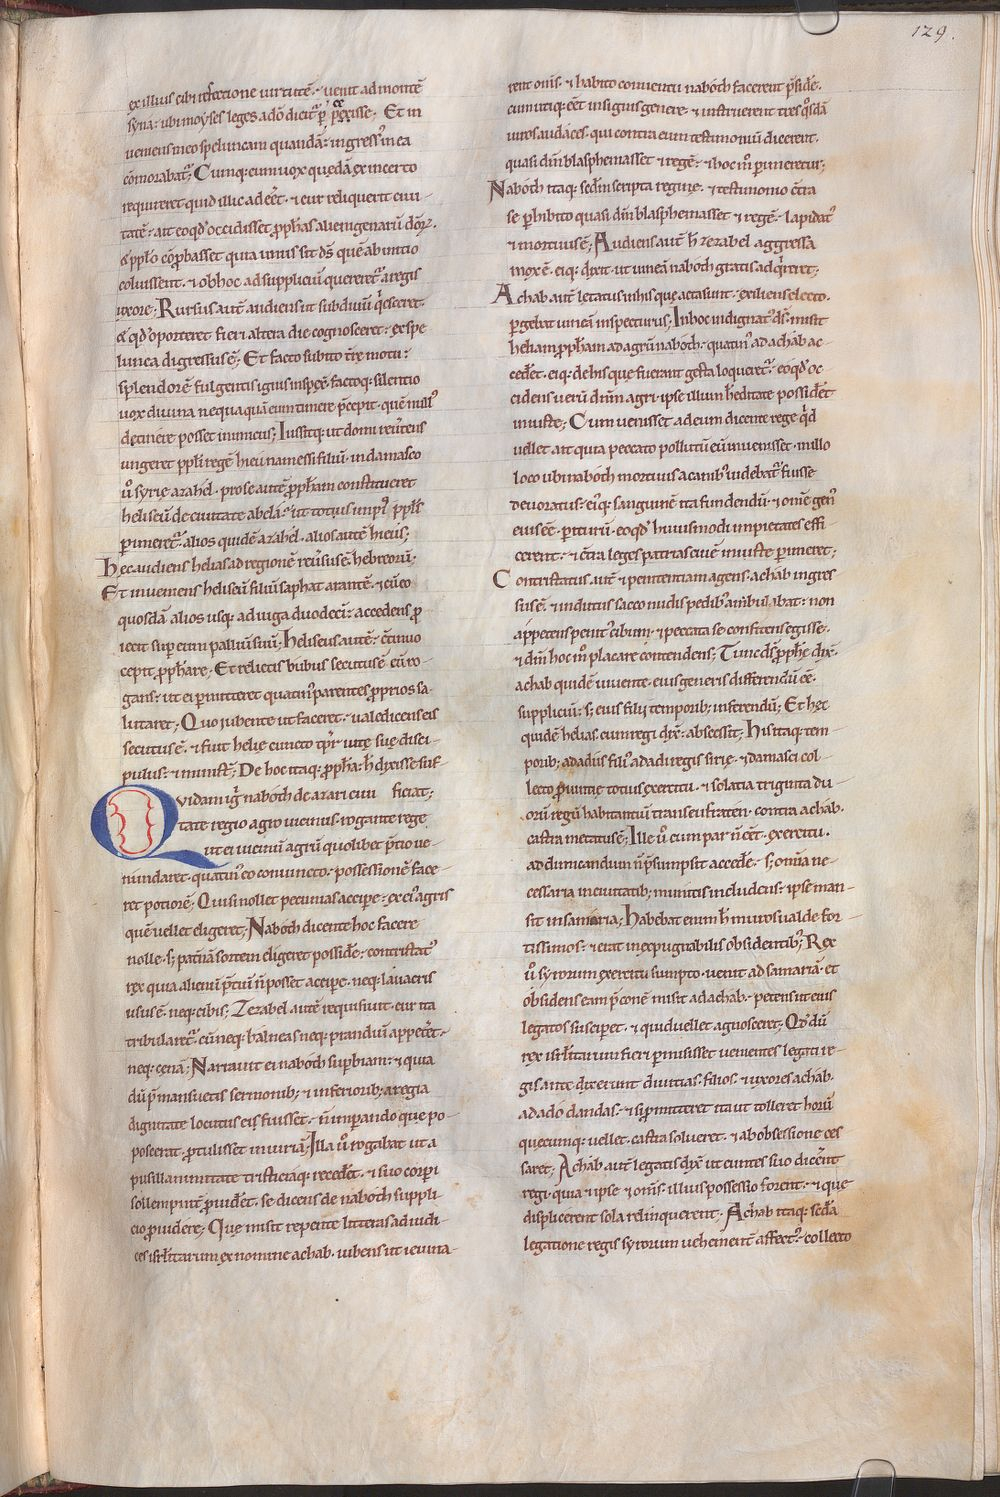 129.
ex illius cibi refectione uirtutē. & uenit ad montē
synai: ubi moyses leges a dō dicit᷑ ꝑcepisse; Et in
ueniens in eo speluncam quandā: ingress᷒ in ea
cōmorabat᷑; Cumq; eum uox quędā ex incerto
requireret quid illic adeēt. & cur reliquerit ciui
tatē. ait eo qd̕ occidisset ꝓph̄as alienigenarū dōꝝ.
& pp̄lo cōprobasset quia unus sit d̄s quē ab initio
coluissent. & ob hoc ad supplicium quereret᷑ a regis
uxore; Rursus autē audiens ut sub diuū q̇esceret.
& qd̕ oporteret fieri altera die cognosceret. ex spe
lunca digressus ē; Et facto subito tr̄ę motu:
splendorē fulgentis ignis inspex̄. factoq; silentio
uox diuina nequaquā eum timere p̄cepit. quē null᷒
detinere posset inimicus; Iussitq; ut domū reūtens
ungeret ppl̄i regē hieu namessi filiū. in damasco
ū syrię azahel. pro se autē ꝓph̄am constitueret
heliseū de ciuitate abela: ut totius impi᷒ ppl̄s
ꝑimeret᷑. alios quidē azahel. alios autē hieus;
Hęc audiens helias ad regionē reūsus ē hebreorū;
Et inueniens heliseū filiū saphat arantē. & cū eo
quosdā alios usq; ad iuga duodecī: accedens ꝓ
iecit sup eum palliū suū; Heliseus autē c̄tinuo
cepit ꝓph̄are; Et relictis bubus secutus ē eū ro
gans. ut ei ꝑmitteret quatin᷒ parentes ꝓprios sa
lutaret; Quo iubente ut faceret. ualedicens eis
secutus ē. & fuit helię cuncto tp̄r uitę suę disci
pulus. & minist᷑; De hoc itaq; ꝓph̄a. h̄ dixisse suf
Quidam iġ naboth de azari ciui ficiat;
tate regio agro uicinus. rogante rege
ut ei uicinū agrū quolibet p̄tio ue
nundaret. quatin᷒ eo coniuncto. possessionē face
ret potiorē; Qui si nollet pecunias accipe. ex ei᷒ agris
quē uellet eligeret; Naboth dicente hoc facere
nolle. s; patnā sortem eligeret posside: contristat᷒
rex quia alienū p̄diū n̄ posset accipe. neq; lauacris
usus ē neq; cibis; Zezabel autē requisiuit. cur ita
tribularet᷑. cū neq; balneas neq; prandiū appetet.
neq; cenā; Narrauit ei naboth suꝑbiam. & quia
dū p̄ mansuetis sermonib; & inferiorib; a regia
dignitate locutus eis fuisset. n̄ impando que po
poscerat. ꝓtulisset iniuriā; Illa ū rogabat ut a
pusillanimitate tristiciaq; recedet. & suo corpi
sollempnit᷑ ꝓuidet. se dicens de naboth suppli
cio ꝓuidere; Quę misit repente litteras ad iudi
ces isrl̄itarum ex nomine achab. iubens ut ieiuna
rent om̄s. & habito conuentu naboth facerent p̄side.
cum utiq; eēt insignis genere. & instruerent tres q̇sdā
uiros audaces. qui contra eum testimoniū dicerent.
quasi dm̄ blasphemasset & regē. & hoc m̊ punieretur;
Naboth itaq; sedm̄ scripta reginę. & testimonio c̄tra
se ꝑhibito quasi dm̄ blasphemasset & regē. lapidat᷒
& mortuus ē; Audiens aut̄ h̄ zezabel aggressa
mox ē. eiq; dixit. ut uineā naboth gratis adq̇reret;
Achab aut̄ letatus in his quę acta sunt. exiliens e lecto.
ꝑgebat uineā inspecturus; In hoc indignat᷒ d̄s. misit
heliam ꝓph̄am ad agrū naboth. quatin᷒ ad achab ac
cedet. eiq; de his quę fuerant gesta loqueret᷑. eo qd̕ oc
cidens uerū dnm̄ agri. ipse illum h̄editate possidet
iniuste; Cum uenisset ad eum dicente rege q̇d
uellet. ait quia peccato pollutū eū inuenisset. in illo
loco ubi naboth mortuus a canib᷒ uidebat᷑ fuisse
deuoratus. ei᷒q; sanguinē ita fundendū. & om̄e gen᷒
eius eē ꝑiturū. eo qd̕ huiusmodi impietates effi
cerent. & c̄tra leges patrias ciuē iniuste ꝑimeret;
Contristatus aut̄ & penitentiam agens. achab ingres
sus ē. & indutus sacco nudis pedib᷒ ambulabat. non
appetens penit᷒ cibum. & peccata se confitens egisse.
& dm̄ hoc m̊ placare contendens; Tunc d̄s ꝓph̄ę dix̄.
achab quidē uiuente. eius generis differendū eē
supplicium. s; eius filij temporib; inferendū; Et hęc
quidē helias. cum regi dix̄. abscessit; His itaq; tem
porib; adadiis fili᷒ adadi regis sirię. & damasci col
lecto ꝓuintię totius exercitu. & solatia triginta du
orū regū habitantiū trans eufraten. contra achab.
castra metatus ē; Ille ū cum par n̄ eēt exercitu.
ad dimicandum n̄ p̄sumpsit accede. s; omīa ne
cessaria in ciuitatib; munitis includens. ipse man
sit in samaria; Habebat enim h̄ muros ualde for
tissimos. & erat inexpugnabilis obsidentib᷒; Rex
ū syrorum exercitu sumpto. uenit ad samariā. et
obsidens eam p̄conē misit ad achab. petens ut eius
legatos suscipet. & quid uellet agnosceret; Qd̕ dū
rex isrl̄itarum fieri ꝑmisisset uenientes legati re
gis. ante dixerunt diuitias. filios. & uxores achab.
adado dandas. & si ꝑmitteret ita ut tolleret horū
quęcumq; uellet. castra solueret. & ab obsessione ces
saret; Achab aut̄ legatis dix̄ ut euntes suo dicerent
regi. quia & ipse & om̄s. illius possessio forent. & quę
displicerent sola relinquerent. Achab itaq; scd̄a
legatione regis syrorum uehement̄ affect᷒. collecto